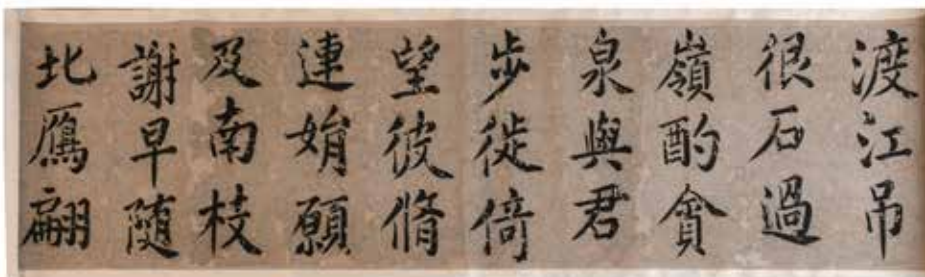 渡江吊
很石過
嶺酌貪
泉與君
步徙倚
望彼脩
連娟願
及南枝
謝早隨
北鴈翩